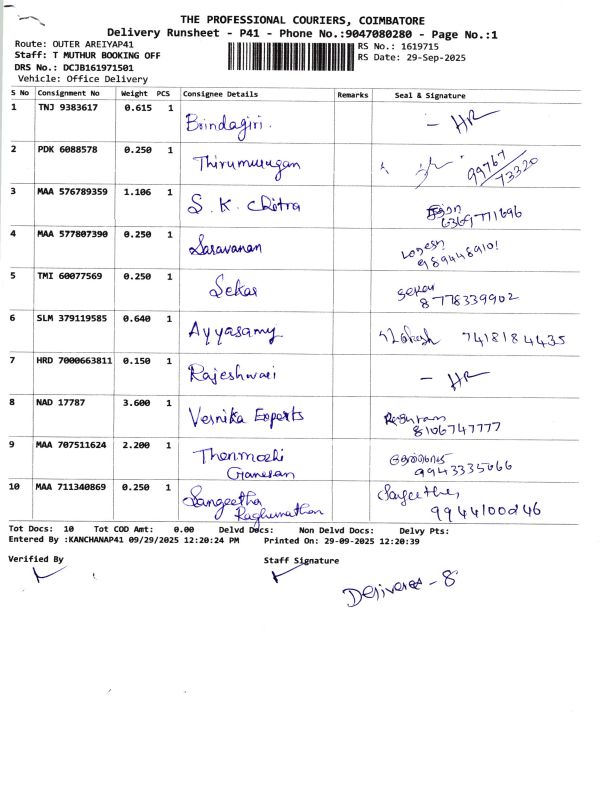 THE PROFESSIONAL COURIERS, COIMBATORE
Delivery Runsheet - P41 - Phone No.:9047080280 - Page No.:1
Route: OUTER AREIYAP41
RS No.: 1619715
Staff: T MUTHUR BOOKING OFF
RS Date: 29-Sep-2025
DRS No.: DCJB161971501
Vehicle: Office Delivery
S No Consignment No Weight PCS Consignee Details Remarks Seal & Signature
1 TNJ 9383617 0.615 1 Brindagiri. - HR
2 PDK 6088578 0.250 1 Thirumurugan 99767
73320
3 MAA 576789359 1.106 1 S. K. Chitra
6369771696
4 MAA 577807390 0.250 1 Saravanan Logesh
9894468910!
5 TMI 60077569 0.250 1 Sekar Sekar
8778339902
6 SLM 379119585 0.640 1 Ayyasamy Lokesh 7418184435
7 HRD 7000663811 0.150 1 Rajeshwari - HR
8 NAD 17787 3.600 1 Vernika Exports
8106747777
9 MAA 707511624 2.200 1 Thenmozhi
Ganesan 9943335066
10 MAA 711340869 0.250 1 Sangeetha
Raghunathan 9944100d46
Tot Docs: 10 Tot COD Amt: 0.00 Delvd Docs: Non Delvd Docs: Delvy Pts:
Entered By :KANCHANAP41 09/29/2025 12:20:24 PM Printed On: 29-09-2025 12:20:39
Verified By Staff Signature
Delivered - 8